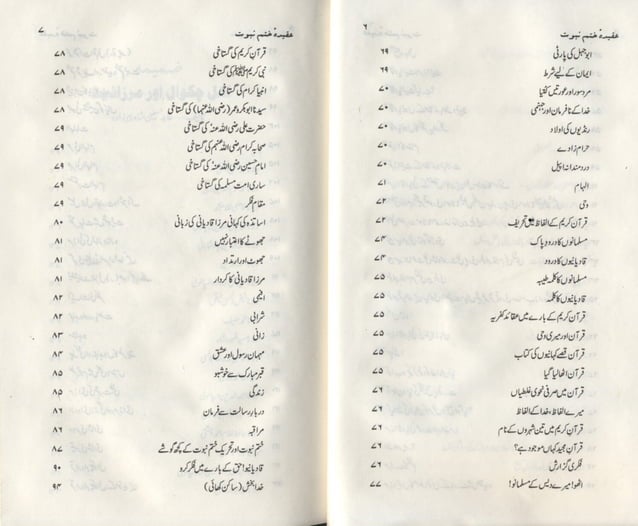 عقیدۂ ختم نبوت ۶
ابوجہل کی پارٹی ۶۹
ایمان کے لیے شرط ۶۹
مرد سور اور عورتیں کتیا ۷۰
خدا کے نافرمان اور جہنمی ۷۰
رنڈیوں کی اولاد ۷۰
حرام زادے ۷۰
دردمندانہ اپیل ۷۰
الہام ۷۱
وحی ۷۲
قرآن کریم کے الفاظ میں تحریف ۷۲
مسلمانوں کا درود پاک ۷۴
قادیانیوں کا درود ۷۴
مسلمانوں کا کلمہ طیبہ ۷۵
قادیانیوں کا کلمہ ۷۵
قرآن کریم کے بارے میں عقائد کفریہ ۷۵
قرآن اور میری وحی ۷۵
قرآن قصے کہانیوں کی کتاب ۷۵
قرآن اٹھا لیا گیا ۷۵
قرآن میں صرفی نحوی غلطیاں ۷۶
میرے الفاظ، خدا کے الفاظ ۷۶
قرآن کریم میں تین شہروں کے نام ۷۶
قرآن مجید کہاں موجود ہے؟ ۷۶
فکری گزارش ۷۶
اٹھو! میرے دیس کے مسلمانو! ۷۷
عقیدۂ ختم نبوت ۷
قرآن کریم کی گستاخی ۷۸
نبی کریم ﷺ کی گستاخی ۷۸
انبیا کرام کی گستاخی ۷۸
سیدنا ابوبکر و عمر (رضی اللہ عنہما) کی گستاخی ۷۸
حضرت علی رضی اللہ عنہ کی گستاخی ۷۹
صحابہ کرام رضی اللہ عنہم کی گستاخی ۷۹
امام حسین رضی اللہ عنہ کی گستاخی ۷۹
ساری امت مسلمہ کی گستاخی ۷۹
مقام فکر ۷۹
اساتذہ کی کہانی مرزا قادیانی کی زبانی ۸۰
جھوٹے کا اعتبار نہیں ۸۱
جھوٹ اور ارتداد ۸۱
مرزا قادیانی کا کردار ۸۱
افیمی ۸۲
شرابی ۸۲
زانی ۸۳
مہمان رسول اور عشق ۸۴
قبر مبارک سے خوشبو ۸۵
زندگی ۸۵
دربار رسالت سے فرمان ۸۶
مراقبہ ۸۶
ختم نبوت اور تحریک ختم نبوت کے کچھ گوشے ۸۷
قادیانیو! حق کے بارے میں فکر کرو ۹۰
خدا بخش (ساکن کھائی) ۹۴